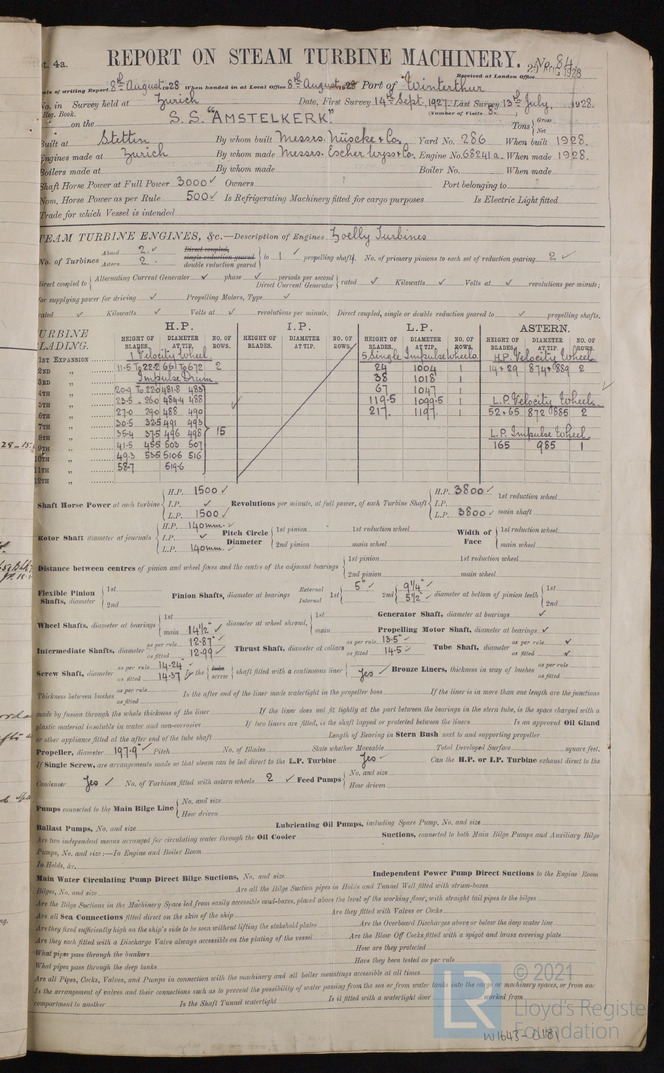 t. 4a.
REPORT ON STEAM TURBINE MACHINERY. No. 84
Received at London Office
ate of writing Report 8th August 1928 When handed in at Local Office 8th August 1928 Port of Winterthur
No. in Survey held at Zurich Date, First Survey 14th Sept. 1927. Last Survey 13th July, 1928.
Reg. Book. (Number of Visits
on the S.S. "AMSTELKERK" Tons { Gross Net
Built at Stettin By whom built Messrs. Nüscke & Co. Yard No. 286 When built 1928.
Engines made at Zurich By whom made Messrs. Escher Wyss & Co. Engine No. 68241a. When made 1928.
Boilers made at By whom made Boiler No. When made
Shaft Horse Power at Full Power 3000 Owners Port belonging to
Nom. Horse Power as per Rule 500 Is Refrigerating Machinery fitted for cargo purposes Is Electric Light fitted
Trade for which Vessel is intended
TEAM TURBINE ENGINES, &c.—Description of Engines Zoelly Turbines
No. of Turbines Ahead 2 Astern 2 Direct coupled, single reduction geared double reduction geared } to 1 propelling shafts. No. of primary pinions to each set of reduction gearing 2
direct coupled to { Alternating Current Generator phase periods per second Direct Current Generator } rated Kilowatts Volts at revolutions per minute;
for supplying power for driving Propelling Motors, Type
rated Kilowatts Volts at revolutions per minute. Direct coupled, single or double reduction geared to propelling shafts.
TURBINE BLADING. H.P. I.P. L.P. ASTERN.
HEIGHT OF BLADES. DIAMETER AT TIP. NO. OF ROWS. HEIGHT OF BLADES. DIAMETER AT TIP. NO. OF ROWS. HEIGHT OF BLADES. DIAMETER AT TIP. NO. OF ROWS. HEIGHT OF BLADES. DIAMETER AT TIP. NO. OF ROWS.
1ST EXPANSION 1 Velocity Wheel 5 Single Impulse wheels H.P. Velocity Wheel
2ND " 11.5 To 22.2 661 To 672 2 24 1004 1 14+29 874+889 2
3RD " Impulse Drum 38 1018 1
4TH " 20.9 To 22.0 481.8 483 67 1047 1
5TH " 23.5 26.0 484.4 488 119.5 1099.5 1 L.P. Velocity Wheel
6TH " 27.0 29.0 488 490 217 1197 1 52+65 872 885 2
7TH " 30.5 32.5 491 493
8TH " 35.4 37.5 496 498 15 L.P. Impulse Wheel
9TH " 41.5 45.5 503 507 165 985 1
10TH " 49.3 53.5 510.6 516
11TH " 58.7 519.6
12TH "
Shaft Horse Power at each turbine { H.P. 1500 I.P. L.P. 1500 Revolutions per minute, at full power, of each Turbine Shaft { H.P. 3800 I.P. L.P. 3800 1st reduction wheel main shaft
Rotor Shaft diameter at journals { H.P. 140mm. I.P. L.P. 140mm. Pitch Circle Diameter { 1st pinion 1st reduction wheel 2nd pinion main wheel Width of Face { 1st reduction wheel main wheel
Distance between centres of pinion and wheel faces and the centre of the adjacent bearings { 1st pinion 1st reduction wheel 2nd pinion main wheel
Flexible Pinion Shafts, diameter { 1st 2nd Pinion Shafts, diameter at bearings External Internal 1st 5" 2nd 9 1/4" 5 1/2" diameter at bottom of pinion teeth { 1st 2nd
Wheel Shafts, diameter at bearings { 1st main 14 1/2" diameter at wheel shroud, { 1st main Generator Shaft, diameter at bearings
Propelling Motor Shaft, diameter at bearings
Intermediate Shafts, diameter as per rule 12.87" as fitted 12.99 Thrust Shaft, diameter at collars as per rule 13.5" as fitted 14.5 Tube Shaft, diameter as per rule as fitted
Screw Shaft, diameter as per rule 14.24" as fitted 14.37 Is the { tube screw } shaft fitted with a continuous liner { Yes Bronze Liners, thickness in way of bushes as per rule as fitted
Thickness between bushes as per rule as fitted Is the after end of the liner made watertight in the propeller boss If the liner is in more than one length are the junctions
made by fusion through the whole thickness of the liner If the liner does not fit tightly at the part between the bearings in the stern tube, is the space charged with a
plastic material insoluble in water and non-corrosive If two liners are fitted, is the shaft lapped or protected between the liners Is an approved Oil Gland
or other appliance fitted at the after end of the tube shaft Length of Bearing in Stern Bush next to and supporting propeller
Propeller, diameter 197.9" Pitch No. of Blades State whether Moveable Total Developed Surface square feet.
If Single Screw, are arrangements made so that steam can be led direct to the L.P. Turbine Yes Can the H.P. or I.P. Turbine exhaust direct to the
Condenser Yes No. of Turbines fitted with astern wheels 2 Feed Pumps { No. and size How driven
Pumps connected to the Main Bilge Line { No. and size How driven
Ballast Pumps, No. and size Lubricating Oil Pumps, including Spare Pump, No. and size
Are two independent means arranged for circulating water through the Oil Cooler Suctions, connected to both Main Bilge Pumps and Auxiliary Bilge
Pumps, No. and size:—In Engine and Boiler Room
In Holds, &c.
Main Water Circulating Pump Direct Bilge Suctions, No. and size Independent Power Pump Direct Suctions to the Engine Room
Bilges, No. and size Are all the Bilge Suction pipes in Holds and Tunnel Well fitted with strum-boxes
Are the Bilge Suctions in the Machinery Space led from easily accessible mud-boxes, placed above the level of the working floor, with straight tail pipes to the bilges
Are all Sea Connections fitted direct on the skin of the ship Are they fitted with Valves or Cocks
Are they fixed sufficiently high on the ship's side to be seen without lifting the stokehold plates Are the Overboard Discharges above or below the deep water line
Are they each fitted with a Discharge Valve always accessible on the plating of the vessel Are the Blow Off Cocks fitted with a spigot and brass covering plate
What pipes pass through the bunkers How are they protected
What pipes pass through the deep tanks Have they been tested as per rule
Are all Pipes, Cocks, Valves, and Pumps in connection with the machinery and all boiler mountings accessible at all times
Is the arrangement of valves and their connections such as to prevent the possibility of water passing from the sea or from water tanks into the cargo or machinery spaces, or from one
compartment to another Is the Shaft Tunnel watertight Is it fitted with a watertight door worked from
LR © 2021
Lloyd's Register
Foundation
W1643-0181